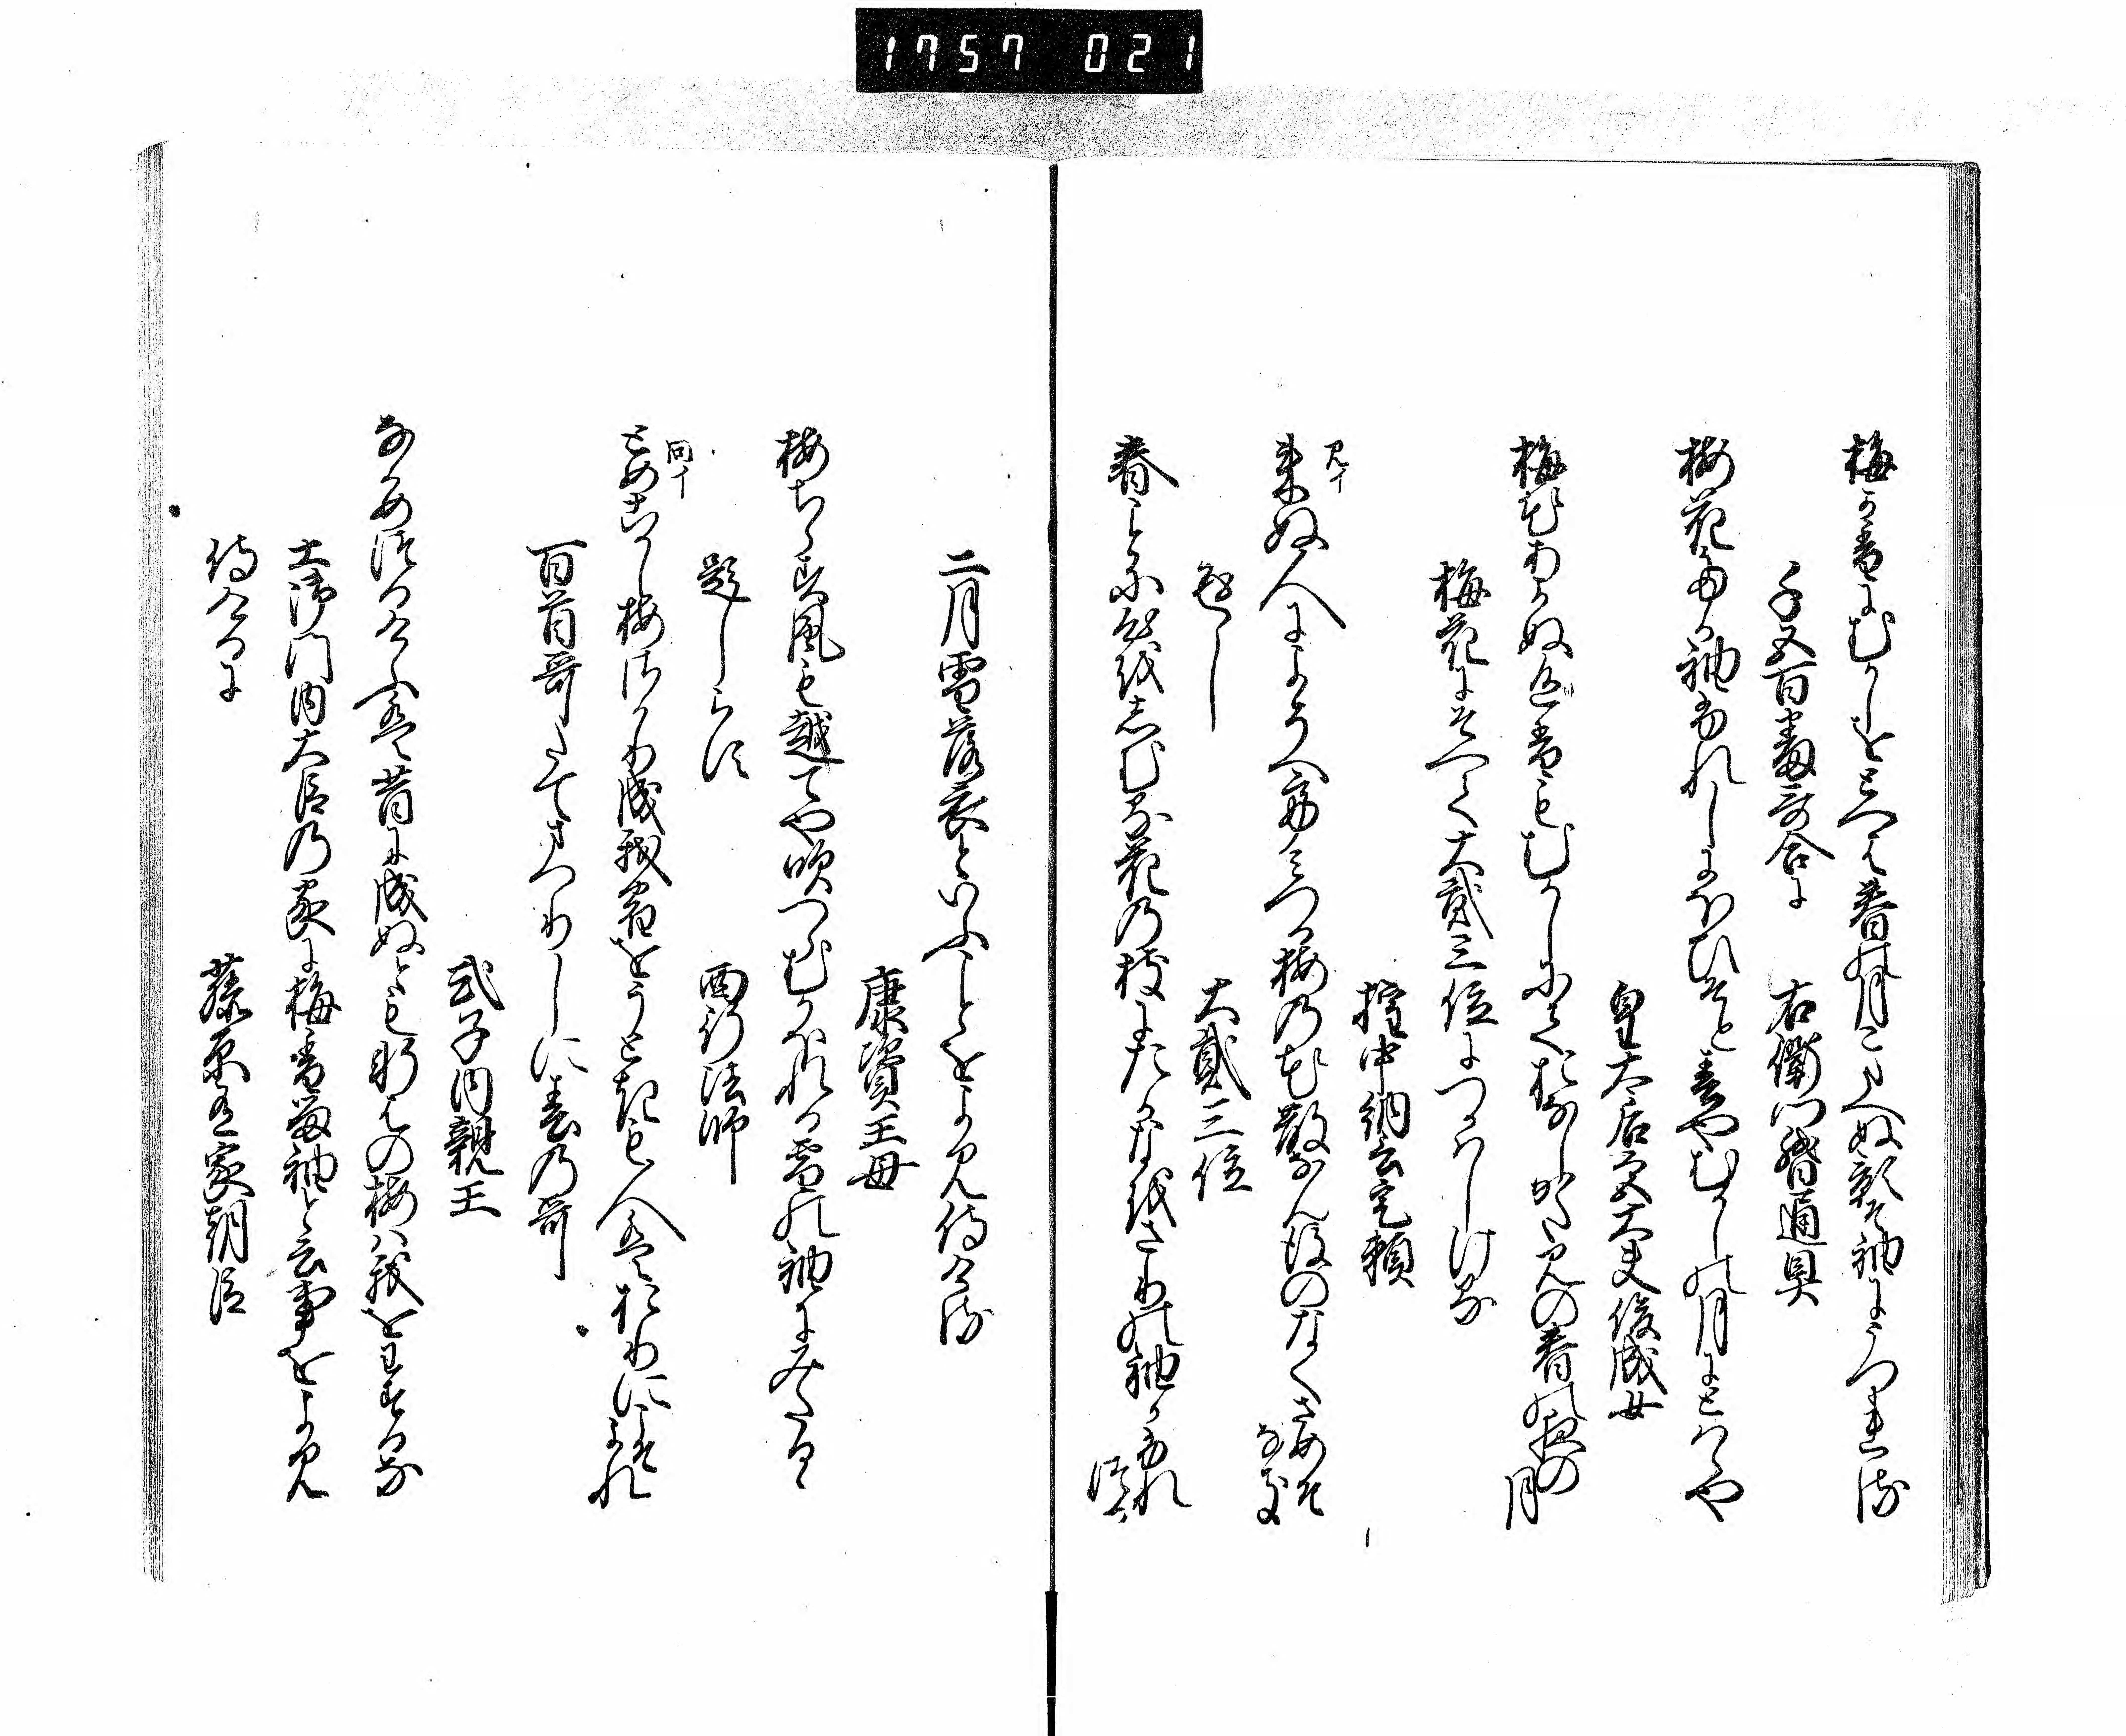 1757 021
梅か香にむかしをとへは春月こたへぬ影そ袖にうつれる
千五百番哥合に　右衛門督通具
梅花たか袖ふれしにほひそと春やむかしの月にとはゝや
皇太后宮大夫俊成女
梅花あかぬ色香もむかしにておなしかたみの春の夜の月
梅花にそへて大貳三位につかはしける
権中納言定頼
見イ
来ぬ人によそへてみつる梅の花散なん後のなくさめそなき
返し
大貳三位
春ことに心をしむる花の枝にたかなをさりの袖かふれつる
二月雪落衣といふことをよみ侍ける
康資王母
梅ちらす風も越てや吹つらむかほれる雪の袖にみたるゝ
題しらす
西行法師
同イ
とめこかし梅さかり成我宿をうときも人はおりにこそよれ
百首哥たてまつりしに春の哥
式子内親王
なかめつるけふは昔に成ぬとも軒はの梅は我をわするな
土御門内大臣の家に梅香留袖と云事をよみ
侍けるに
藤原有家朝臣